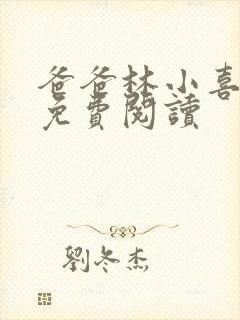 爸爸林小喜
免費閱讀
劉冬杰